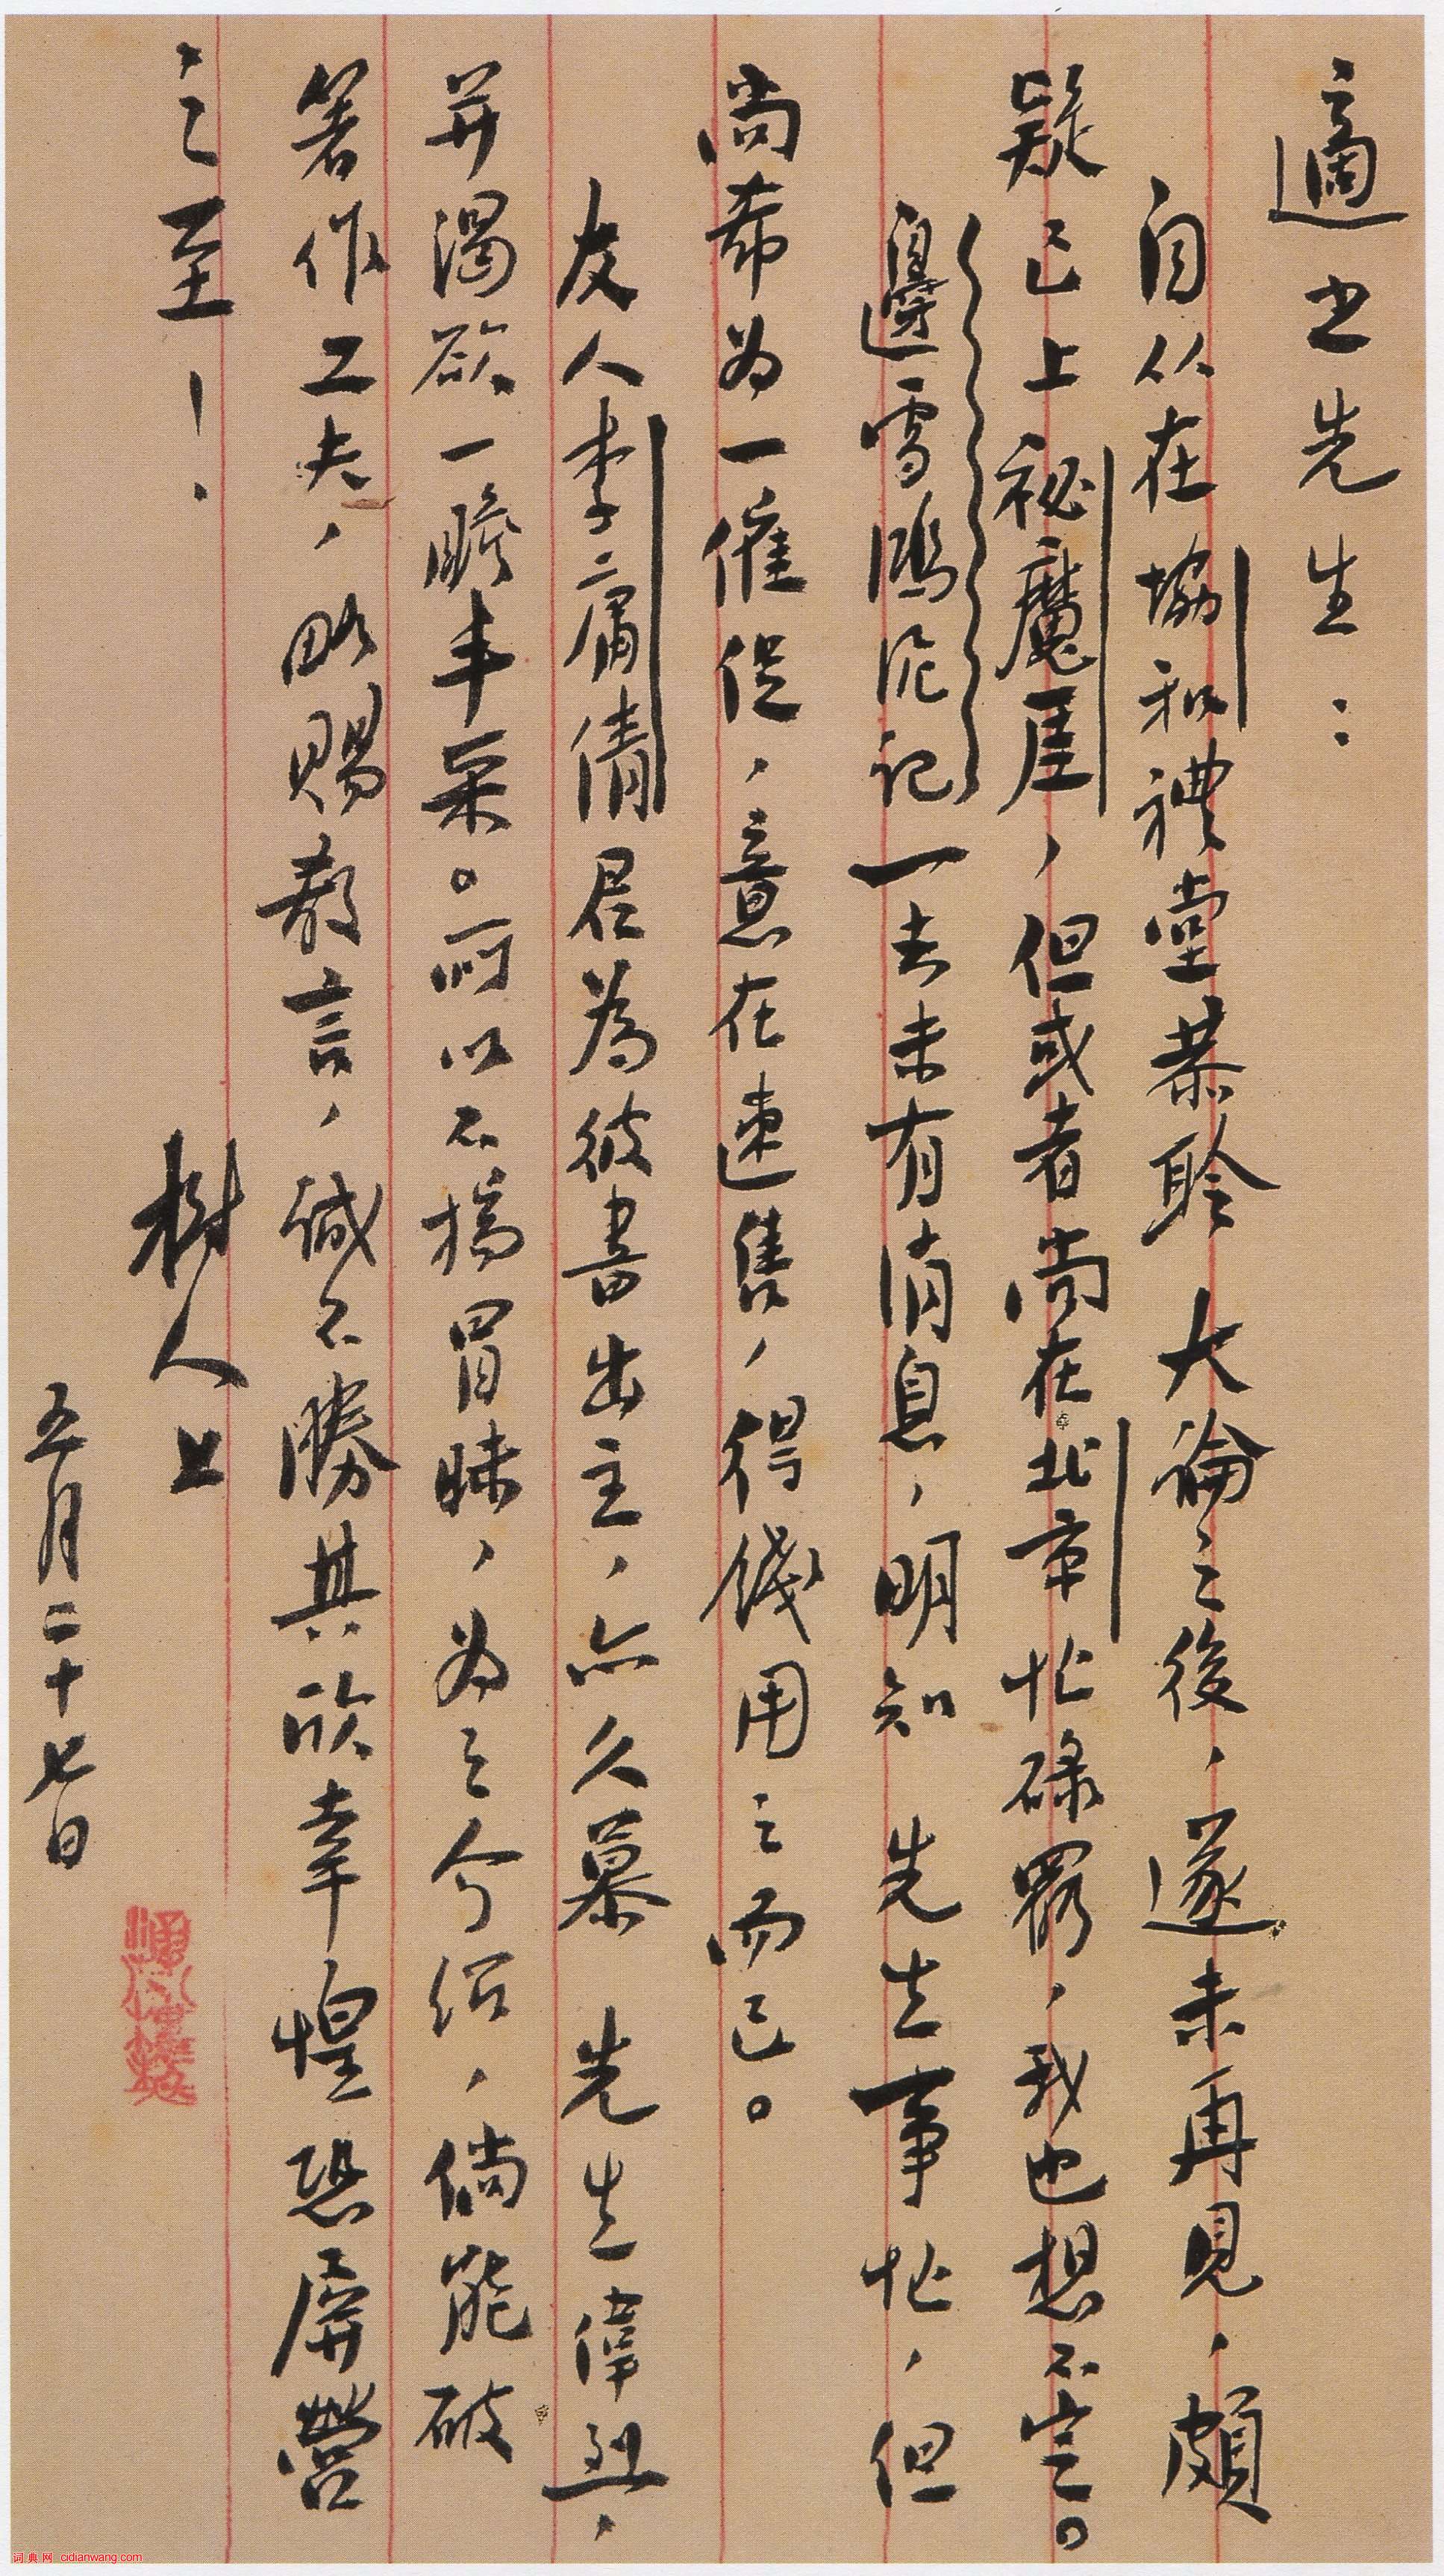 適之先生：
自從在協和禮堂恭聆　大論之後，遂未再見，頗
疑已上祕魔厓，但或者尚在北京忙碌罷，我也想不定。
邊雪鴻泥記一去未有消息，明知　先生事忙，但
尚希為一催促，意在速售，得錢用之而已。
友人李庸倩君為彼書出主，亦久慕　先生偉烈，
并渴欲一瞻丰采。所以不揣冒昧，為之介紹，倘能破
著作工夫，略賜教言，誠不勝其欣幸惶恐屏營
之至！
樹人上
五月二十七日
词典网 cidianwang.com